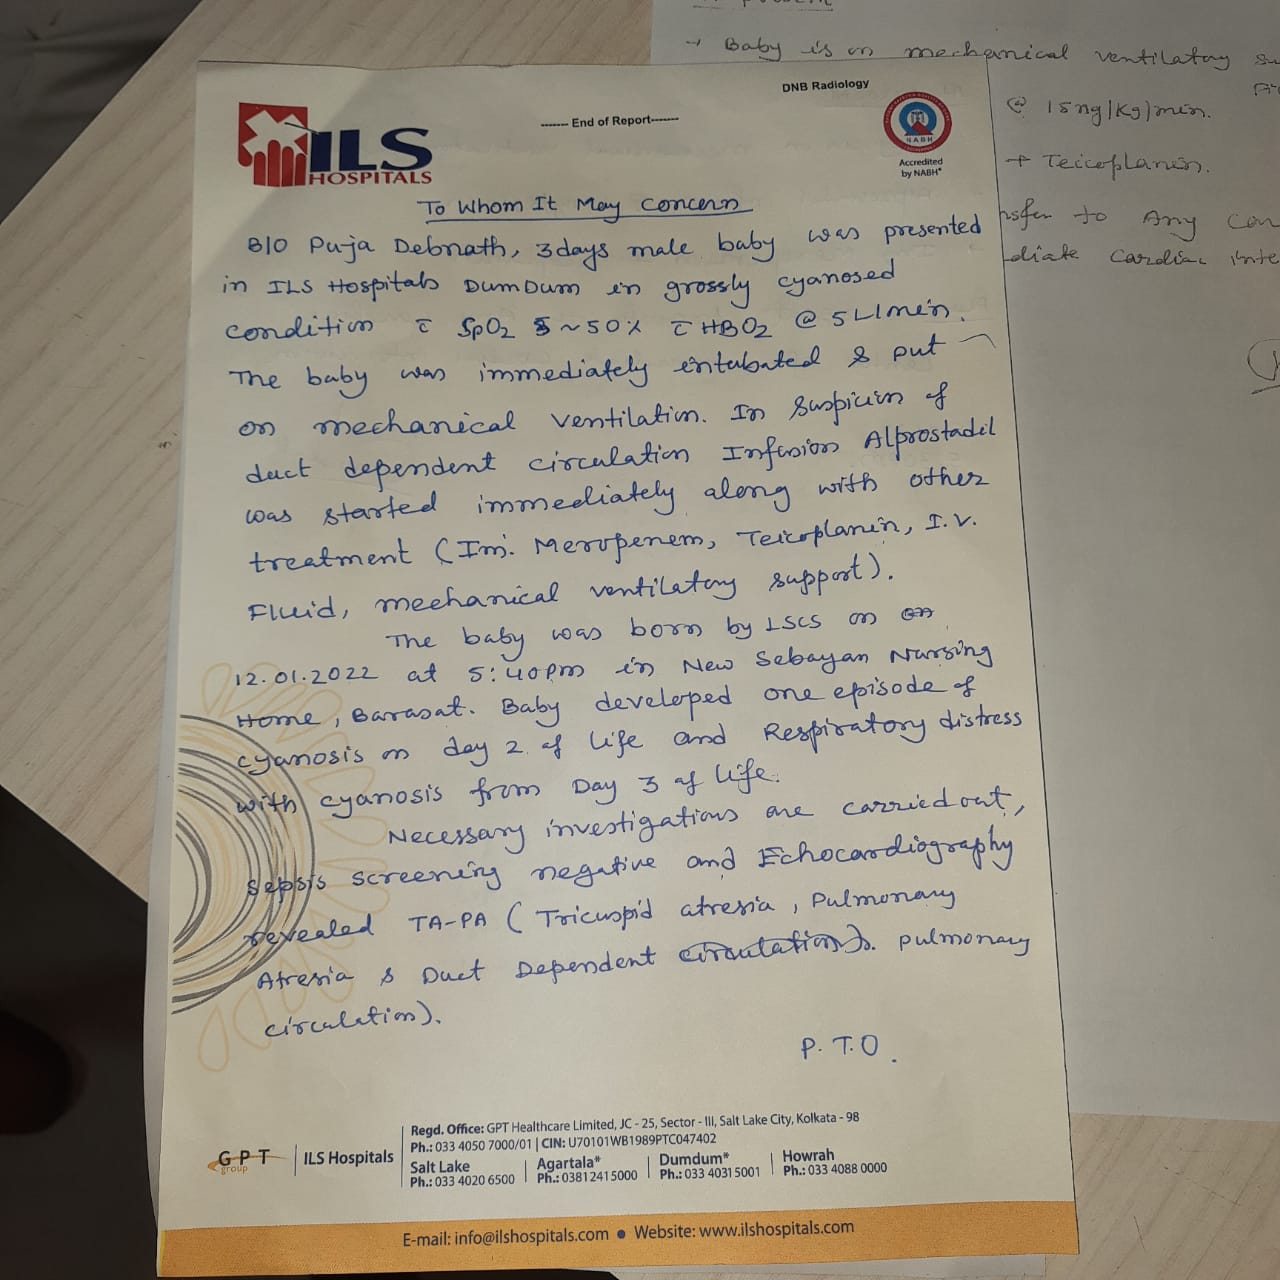 DNB Radiology
------- End of Report-------
ILS
HOSPITALS
NABH
Accredited
by NABH*
To Whom It May Concern
B/O Puja Debnath, 3days male baby was presented
in ILS Hospitals DumDum in grossly cyanosed
condition c̄ SpO2 ~50% c̄ HBO2 @ 5L/min.
The baby was immediately intubated & put
on mechanical ventilation. In suspicion of
duct dependent circulation Infusion Alprostadil
was started immediately along with other
treatment (Inj. Meropenem, Teicoplanin, I.V.
Fluid, mechanical ventilatory support).
The baby was born by LSCS on
12.01.2022 at 5:40pm in New Sebayan Nursing
Home, Barasat. Baby developed one episode of
cyanosis on day 2 of life and Respiratory distress
with cyanosis from Day 3 of life.
Necessary investigations are carried out,
sepsis screening negative and Echocardiography
revealed TA-PA (Tricuspid atresia, Pulmonary
Atresia & Duct Dependent circulation). pulmonary
circulation).
P.T.O.
Regd. Office: GPT Healthcare Limited, JC - 25, Sector - III, Salt Lake City, Kolkata - 98
Ph.: 033 4050 7000/01 | CIN: U70101WB1989PTC047402
GPT group
ILS Hospitals
Salt Lake
Ph.: 033 4020 6500
Agartala*
Ph.: 03812415000
Dumdum*
Ph.: 033 40315001
Howrah
Ph.: 033 4088 0000
E-mail: info@ilshospitals.com • Website: www.ilshospitals.com
→ Baby is on mechanical ventilatory
@ 15ng/kg/min.
+ Teicoplanin.
to Any
cardiac